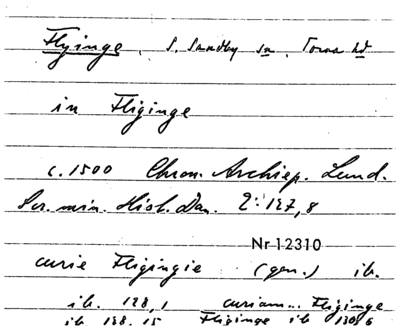 Flyinge. S. Sandby sn. Torna hd
in Fliginge
c. 1500 Chron. Archiep. Lund.
Scr. min. Hist. Dan. 2: 127, 8
Nr 12310
curie Fligingie (gen.) ib.
ib. 128, 1 curiam... Fliginge
ib 128. 15 Fliginge ib